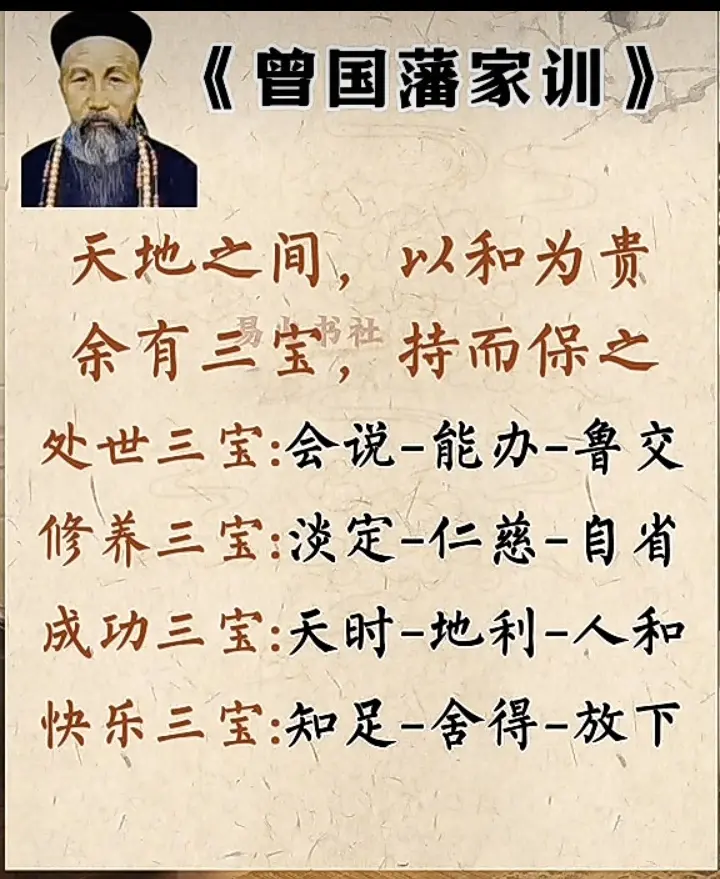 《曾国藩家训》
天地之间，以和为贵
余有三宝，持而保之
处世三宝:会说-能办-鲁交
修养三宝:淡定-仁慈-自省
成功三宝:天时-地利-人和
快乐三宝:知足-舍得-放下